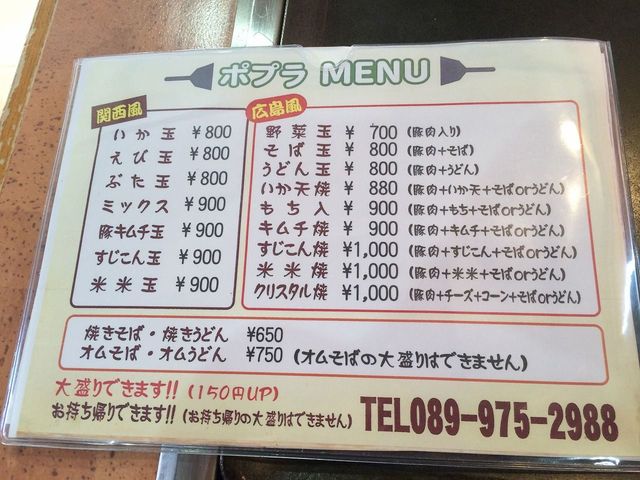 ポプラ MENU
関西風
いか玉 ¥800
えび玉 ¥800
ぶた玉 ¥800
ミックス ¥900
豚キムチ玉 ¥900
すじこん玉 ¥900
米米玉 ¥900
広島風
野菜玉 ¥ 700 (豚肉入り)
そば玉 ¥ 800 (豚肉+そば)
うどん玉 ¥ 800 (豚肉+うどん)
いか天焼 ¥ 880 (豚肉+いか天+そばorうどん)
もち入 ¥ 900 (豚肉+もち+そばorうどん)
キムチ焼 ¥ 900 (豚肉+キムチ+そばorうどん)
すじこん焼 ¥1,000 (豚肉+すじこん+そばorうどん)
米米焼 ¥1,000 (豚肉+米米+そばorうどん)
クリスタル焼 ¥1,000 (豚肉+チーズ+コーン+そばorうどん)
焼きそば・焼きうどん ¥650
オムそば・オムうどん ¥750 (オムそばの大盛りはできません)
大盛りできます!! (150円UP)
お持ち帰りできます!! (お持ち帰りの大盛りはできません) TEL089-975-2988